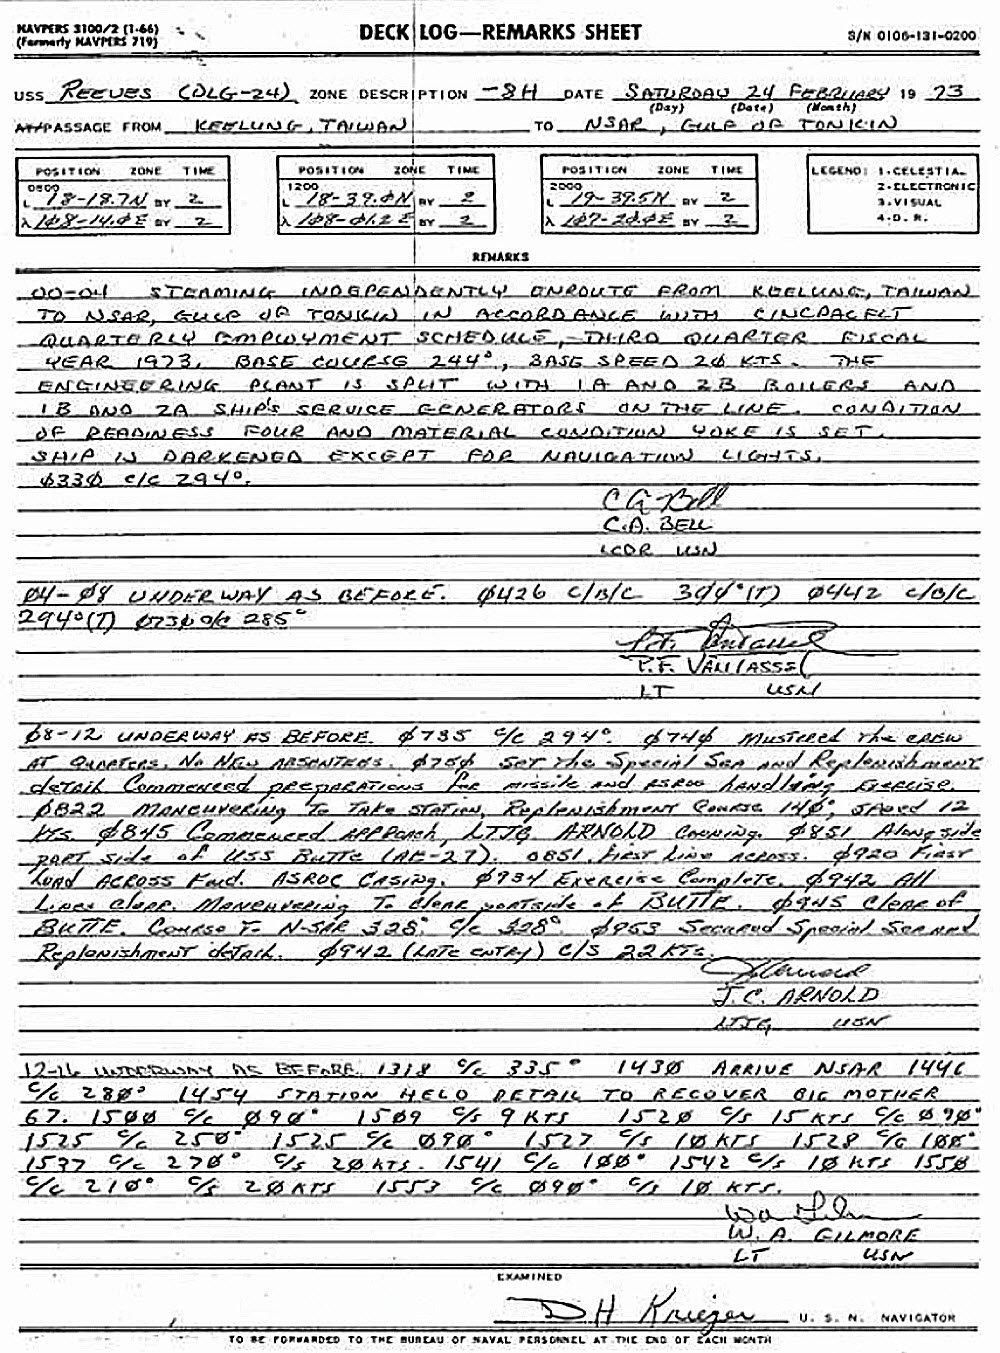 NAVPERS 3100/2 (1-66)
(Formerly NAVPERS 719)
DECK LOG—REMARKS SHEET
S/N 0106-131-0200
USS REEVES (DLG-24) ZONE DESCRIPTION -8H DATE SATURDAY 24 FEBRUARY 19 73
(Day) (Date) (Month)
AT/PASSAGE FROM KEELUNG, TAIWAN TO NSAR, GULF OF TONKIN
POSITION ZONE TIME
0800
L 18-18.7N BY 2
λ 1Ø8-14.ØE BY 2
POSITION ZONE TIME
1200
L 18-39.ØN BY 2
λ 1Ø8-Ø1.2E BY 2
POSITION ZONE TIME
2000
L 19-39.5N BY 2
λ 1Ø7-2Ø.ØE BY 2
LEGEND: 1-CELESTIAL
2-ELECTRONIC
3-VISUAL
4-D. R.
REMARKS
00-04 STEAMING INDEPENDENTLY ENROUTE FROM KEELUNG, TAIWAN
TO NSAR, GULF OF TONKIN IN ACCORDANCE WITH CINCPACFLT
QUARTERLY EMPLOYMENT SCHEDULE, THIRD QUARTER FISCAL
YEAR 1973. BASE COURSE 244°, BASE SPEED 2Ø KTS. THE
ENGINEERING PLANT IS SPLIT WITH 1A AND 2B BOILERS AND
1B AND 2A SHIP'S SERVICE GENERATORS ON THE LINE. CONDITION
OF READINESS FOUR AND MATERIAL CONDITION YOKE IS SET.
SHIP IS DARKENED EXCEPT FOR NAVIGATION LIGHTS.
Ø33Ø c/c 294°.
C A Bell
C.A. BELL
LCDR USN
Ø4-Ø8 UNDERWAY AS BEFORE. Ø426 C/B/C 344°(T) Ø442 C/B/C
294°(T) Ø73Ø c/c 285°
P.F. VANTASSEL
LT USN
Ø8-12 UNDERWAY AS BEFORE. Ø735 c/c 294°. Ø74Ø Mustered the crew
AT Quarters. No New ABSENTEES. Ø75Ø Set the Special Sea and Replenishment
detail Commenced preparations for missile and ASROC handling Exercise.
Ø822 Maneuvering To Take Station, Replenishment Course 14Ø°, Speed 12
KTS Ø845 Commenced APPROACH, LTJG ARNOLD Conning. Ø851 Alongside
PORT Side of USS Butte (AE-27). 0851 First Line Across. Ø920 First
Load ACROSS Fwd. ASROC Casing. Ø934 Exercise Complete. Ø942 All
Lines Clear. Maneuvering To clear portside of BUTTE. Ø945 Clear of
BUTTE. Course To N-SAR 328°. c/c 328°. Ø953 Secured Special Sea and
Replenishment detail. Ø942 (Late entry) c/s 22 KTS.
J.C. ARNOLD
LTJG USN
12-16 UNDERWAY AS BEFORE. 1318 c/c 335° 143Ø ARRIVE NSAR 1446
c/c 28Ø° 1454 STATION HELO DETAIL TO RECOVER BIG MOTHER
67. 15ØØ c/c Ø9Ø° 15Ø9 c/s 9 KTS 152Ø c/s 15 KTS c/c Ø9Ø°
1525 c/c 25Ø° 1525 c/c Ø9Ø° 1527 c/s 1Ø KTS 1528 c/c 1ØØ°
1537 c/c 27Ø° c/s 2Ø KTS. 1541 c/c 1ØØ° 1542 c/s 1Ø KTS 155Ø
c/c 21Ø° c/s 2Ø KTS 1553 c/c Ø9Ø° c/s 1Ø KTS.
W. A. GILMORE
LT USN
EXAMINED
D H Krieger U. S. N. NAVIGATOR
TO BE FORWARDED TO THE BUREAU OF NAVAL PERSONNEL AT THE END OF EACH MONTH